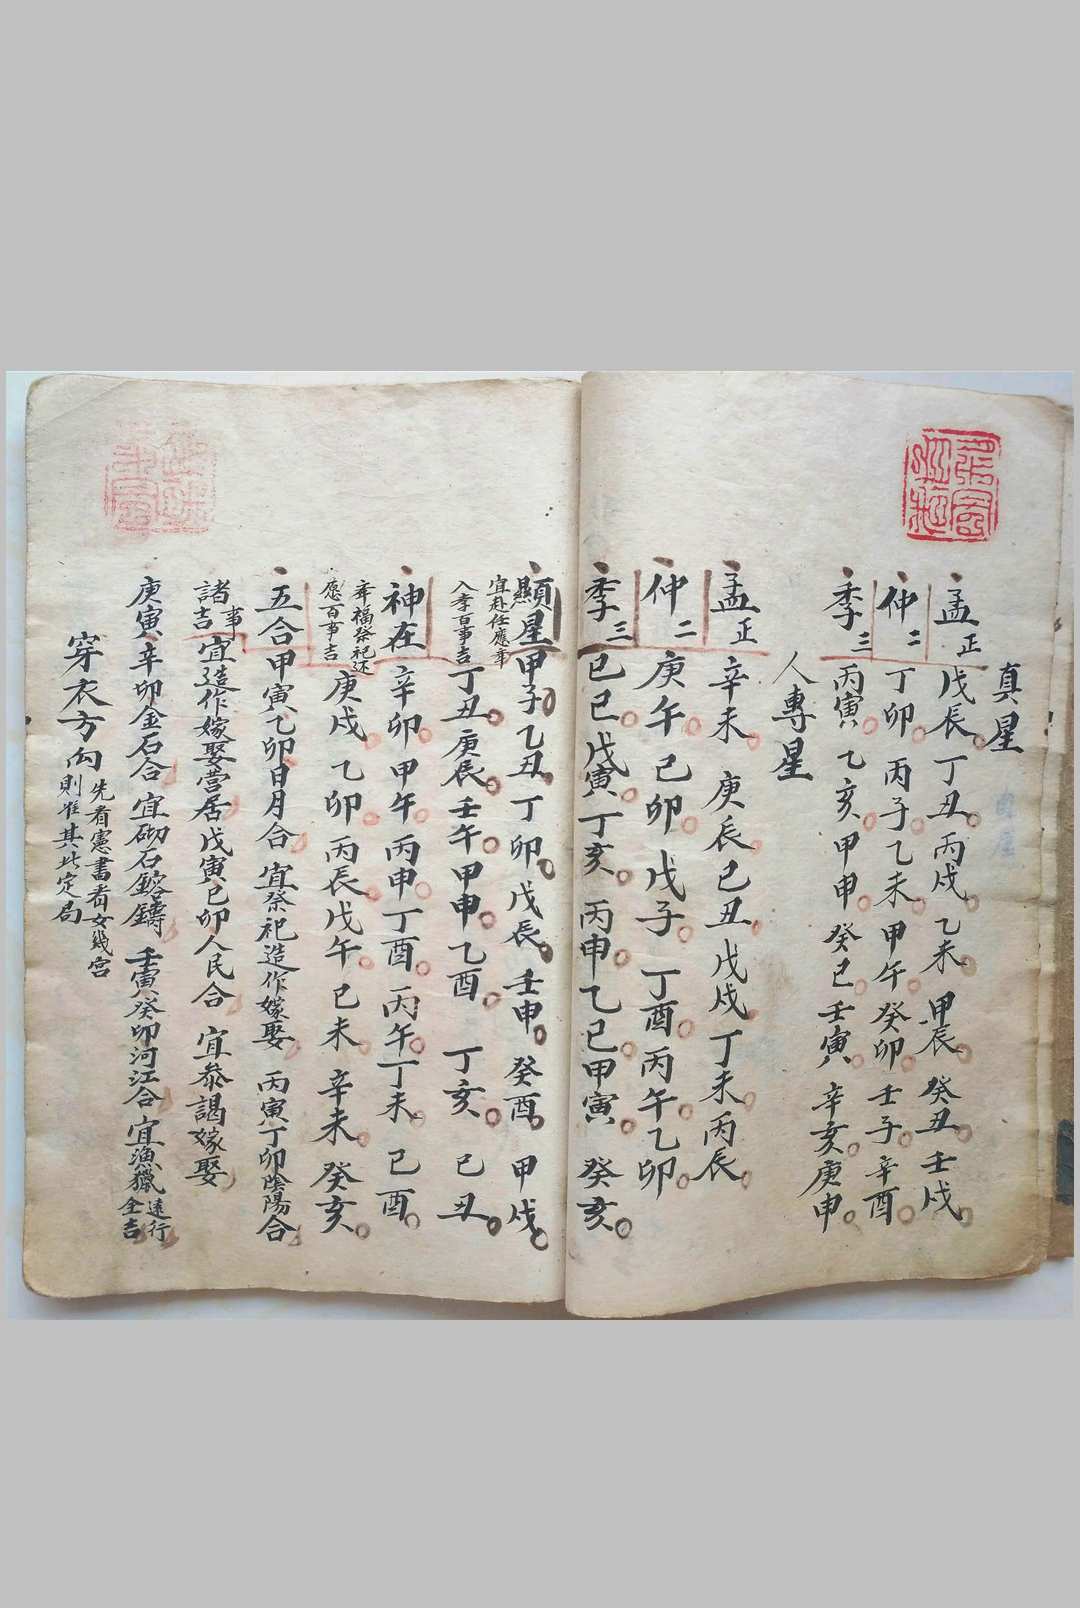 真星
孟正 戊辰 丁丑 丙戌 乙未 甲辰 癸丑 壬戌
仲二 丁卯 丙子 乙未 甲午 癸卯 壬子 辛酉
季三 丙寅 乙亥 甲申 癸巳 壬寅 辛亥 庚申
人專星
孟正 辛未 庚辰 己丑 戊戌 丁未 丙辰
仲二 庚午 己卯 戊子 丁酉 丙午 乙卯
季三 己巳 戊寅 丁亥 丙申 乙巳 甲寅 癸亥
顯星 甲子 乙丑 丁卯 戊辰 壬申 癸酉 甲戌
宜赴任應事
入孝百事吉
丁丑 庚辰 壬午 甲申 乙酉 丁亥 己丑
神在 辛卯 甲午 丙申 丁酉 丙午 丁未 己酉
福祭祀还
應百事吉
庚戌 乙卯 丙辰 戊午 己未 辛未 癸亥
五合 甲寅乙卯日月合 宜祭祀造作嫁娶 丙寅丁卯陰陽合
諸事吉 宜造作嫁娶营居 戊寅己卯人民合 宜參謁嫁娶
庚寅辛卯金石合 宜砌石鎔鑄 壬寅癸卯河江合 宜漁獵遠行全吉
穿衣方向
先看憲書看女幾宮
則准其此定局